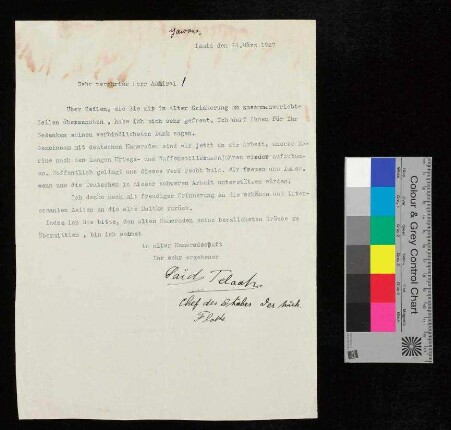 Yawous.
Ismid den 14.März 1927
Sehr verehrter Herr Admiral !
Über Zeilen, die Sie mir in alter Erinnerung so
übersandten , habe ich mich sehr gefreut. Ich darf Ihnen für Ihr
Gedenken meinen verbindlichsten Dank sagen.
Gemeinsam mit deutschen Kameraden sind wir jetzt an der Arbeit, unsere Ma-
rine nach den langen Kriegs- und Waffenstillstandsjahren wieder aufzubau-
en. Hoffentlich gelingt uns dieses Werk recht bald. Wir freuen uns
wenn uns die Deutschen in dieser schweren Arbeit unterstützen würden.
Ich denke noch mit freudiger Erinnerung an die schönen und inter-
essanten Zeiten an die alte zurück.
Indem ich Sie bitte, den alten Kameraden meine herzlichsten Grüsse zu
übermitteln , bin ich meinst
in alter Kameradschaft
Ihr sehr ergebener
Said Telaat.
Chef des Stabes der türk.
Flotte
Colour & Grey Control Chart